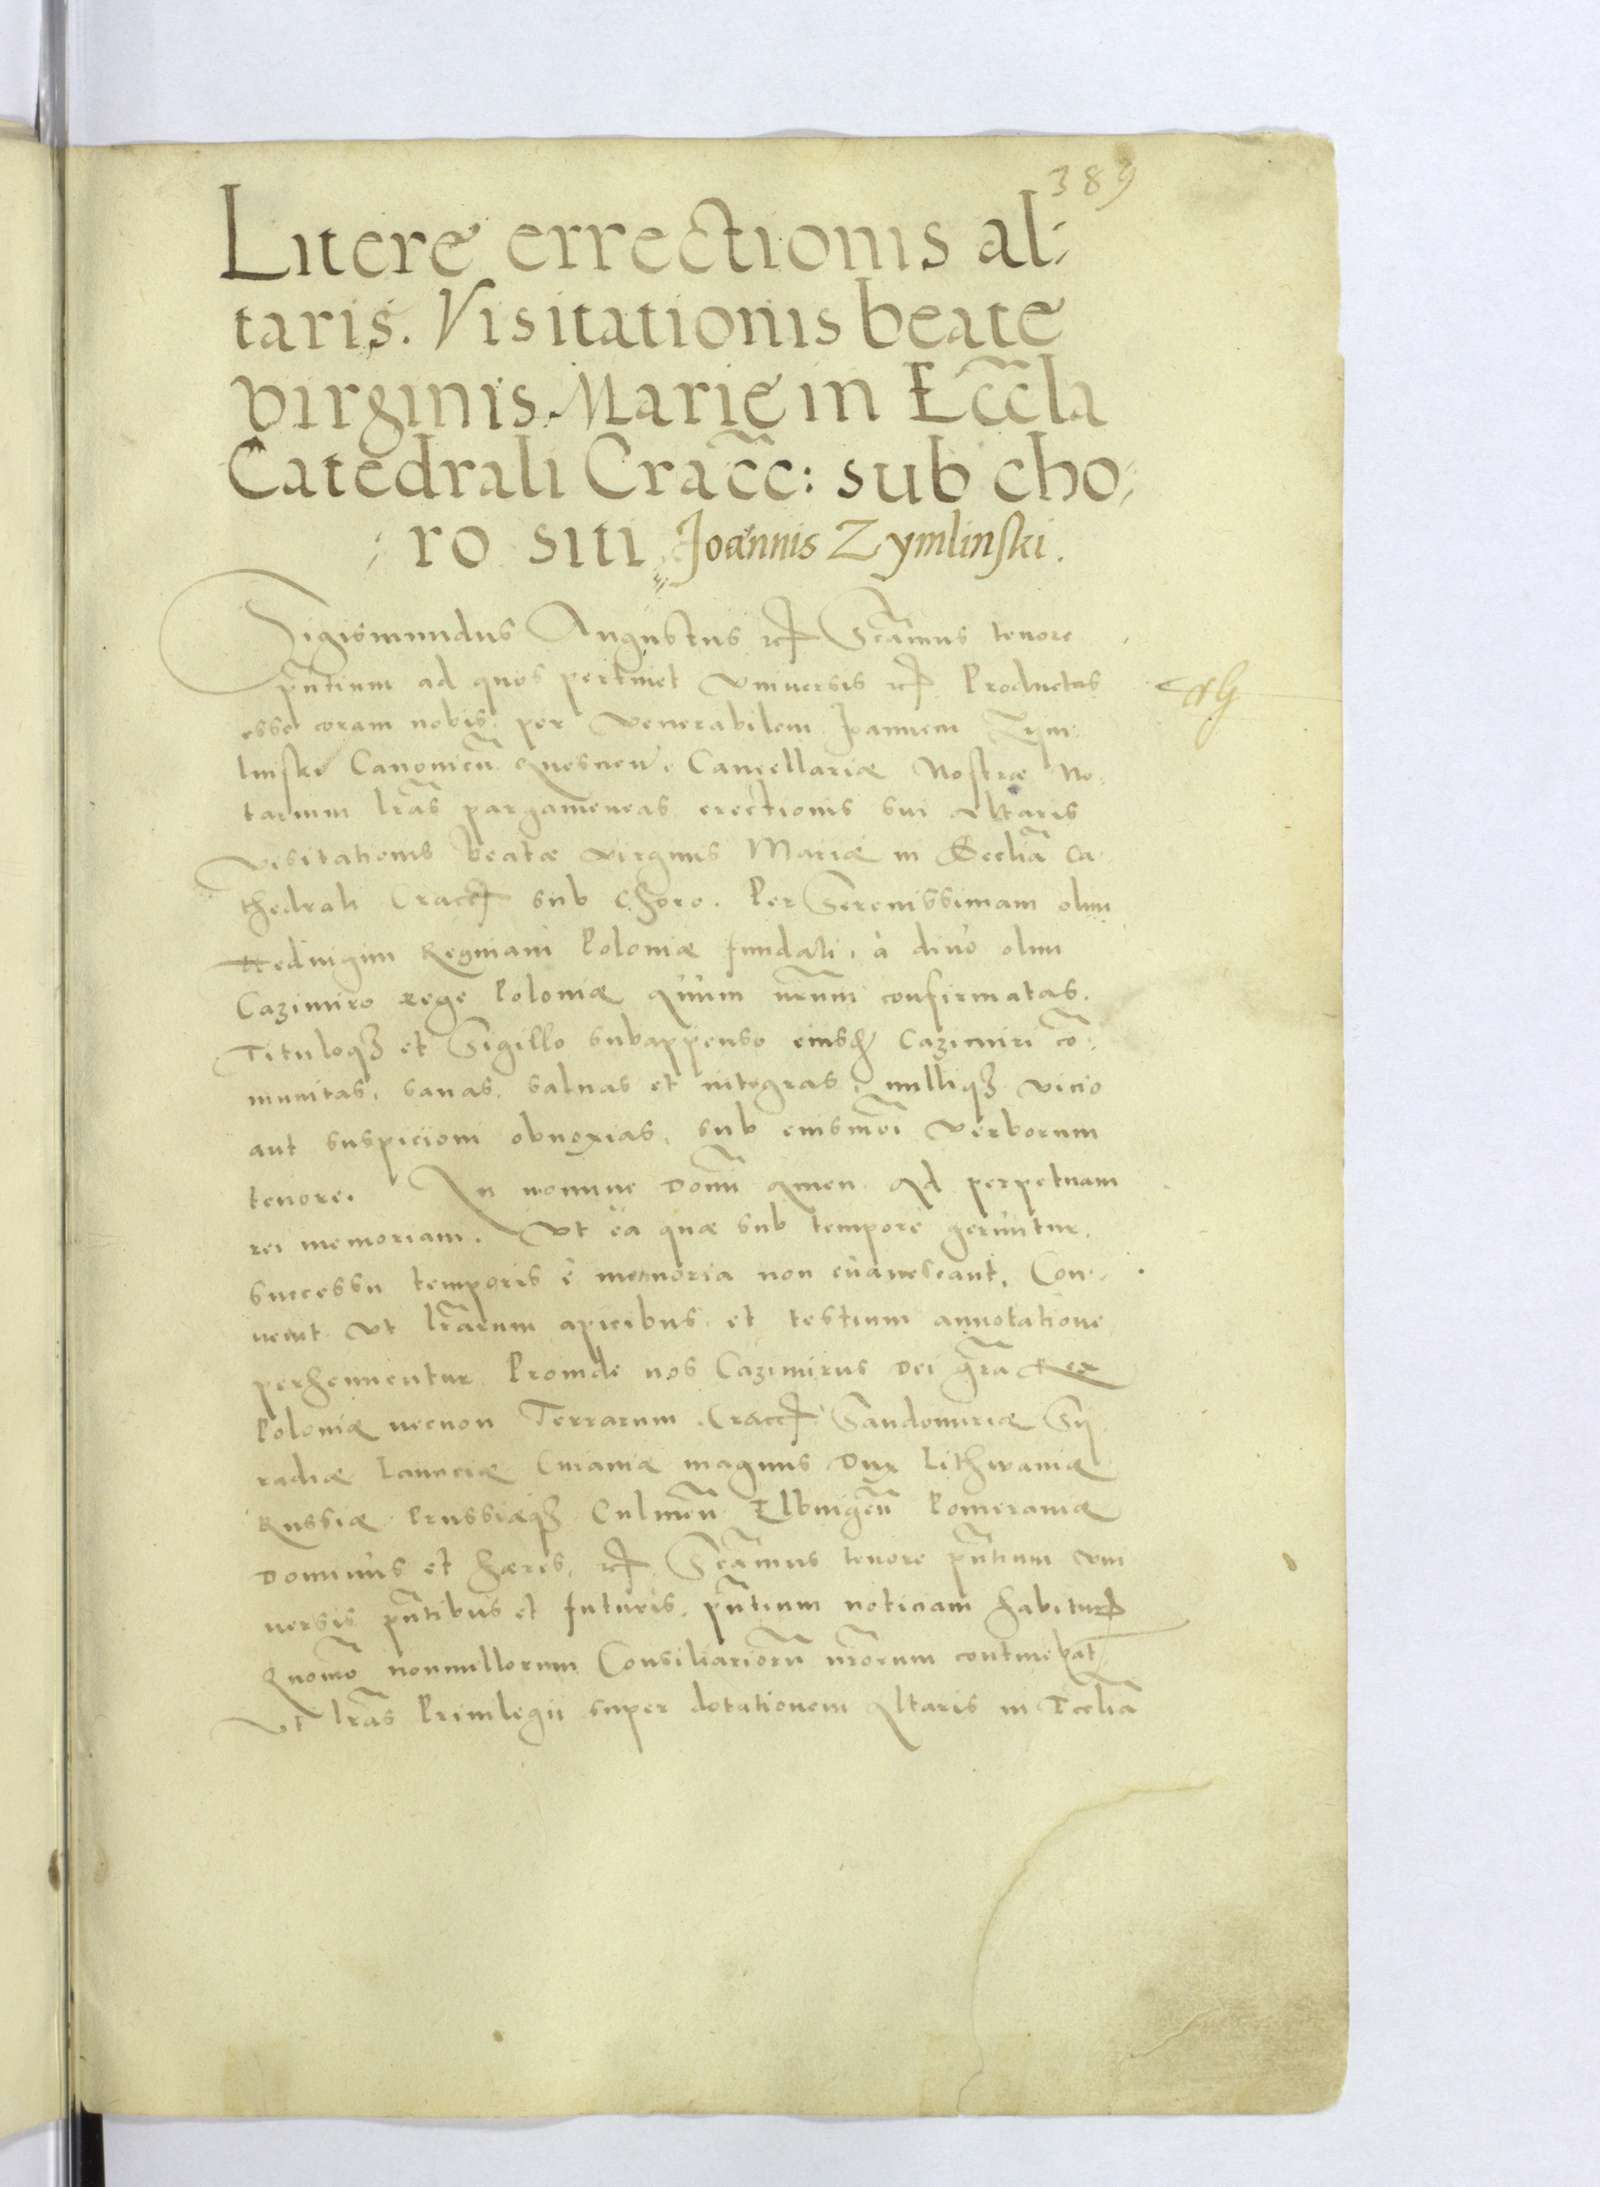 389
Litere errectionis al⸗
taris. Visitationis beate
virginis Marię in Eccla
Catedrali Cracc: sub cho⸗
⸗ro siti Joannis Zymlinski.
Sigismundus Augustus etc Scamus tenore
pntium ad quos pertinet vniuersis etc. Productas
esse coram nobis, per venerabilem Joannem Zym
linski Canonicu Gnesnen, Cancellariæ Nostræ No
tarium lras pargameneas erectionis sui altaris
visitationis beatæ virginis Mariæ in Ecclia Ca
thedrali Cracc sub Choro. Per Serenissimam olim
Heduigim Reginam Poloniæ fundati, à diuo olim
Cazimiro rege Poloniæ auum nrum confirmatas.
Tituloqz et Sigillo subappenso eiusd Cazimiri co
munitas, sanas, saluas et integras, nulliqz vicio
aut suspicioni obnoxias, sub eiusmoi verborum
tenore. In nomine Domi amen. Ad perpetuam
rei memoriam. Vt ea quæ sub tempore geruntur
successu temporis è memoria non euanescant, Con⸗
uenit vt lrarum apicibus et testium annotatione
perhennentur Proinde nos Cazimirus Dei gra Rex
Poloniæ necnon Terrarum Cracc Sandomiriæ Sy
radiæ Lanciciæ Cuiauiæ magnus Dux Lithwaniæ
Russiæ Prussiæqz Culmen Elbingen Pomeraniæ
Dominus et hæres, etc. Scamus tenore pntium vni
uersis pntibus et futuris, pntium noticiam habitur
Quomo nonnullorum Consiliarioru nrorum continebat
Vt lras Priuilegii super dotationem altaris in Ecclia